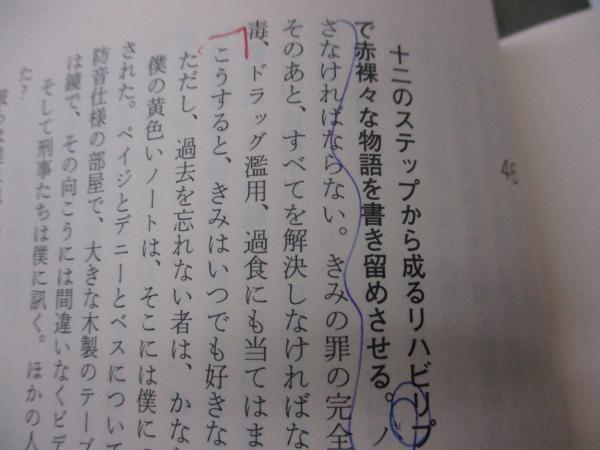 46
十二のステップから成るリハビリプ
で赤裸々な物語を書き留めさせる。ノ
さなければならない。きみの罪の完全
そのあと、すべてを解決しなければな
毒、ドラッグ濫用、過食にも当てはま
こうすると、きみはいつでも好きな
ただし、過去を忘れない者は、かな
僕の黄色いノートは、そこには僕に
された。ペイジとデニーとベスについて
防音仕様の部屋で、大きな木製のテーブ
は鏡で、その向こうには間違いなくビデ
そして刑事たちは僕に訊く。ほかの人
た?